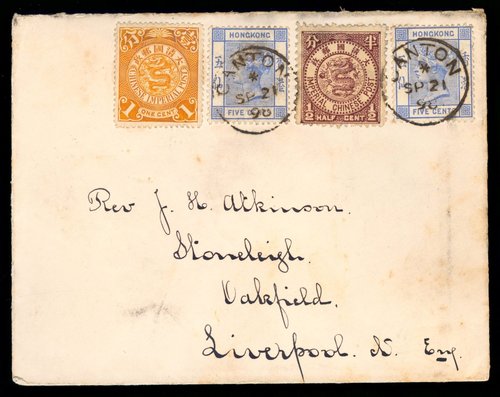 大清國郵政
分
CHINESE IMPERIAL POST
1 ONE CENT 1
HONGKONG
FIVE CENTS
CANTON
SP 21
98
半
分
大清國郵政
IMPERIAL CHINESE POST
1/2 HALF CENT 1/2
HONGKONG
FIVE CENTS
CANTON
SP 21
98
Rev J. H. Atkinson.
Stoneleigh.
Oakfield.
Liverpool. N. Eng.